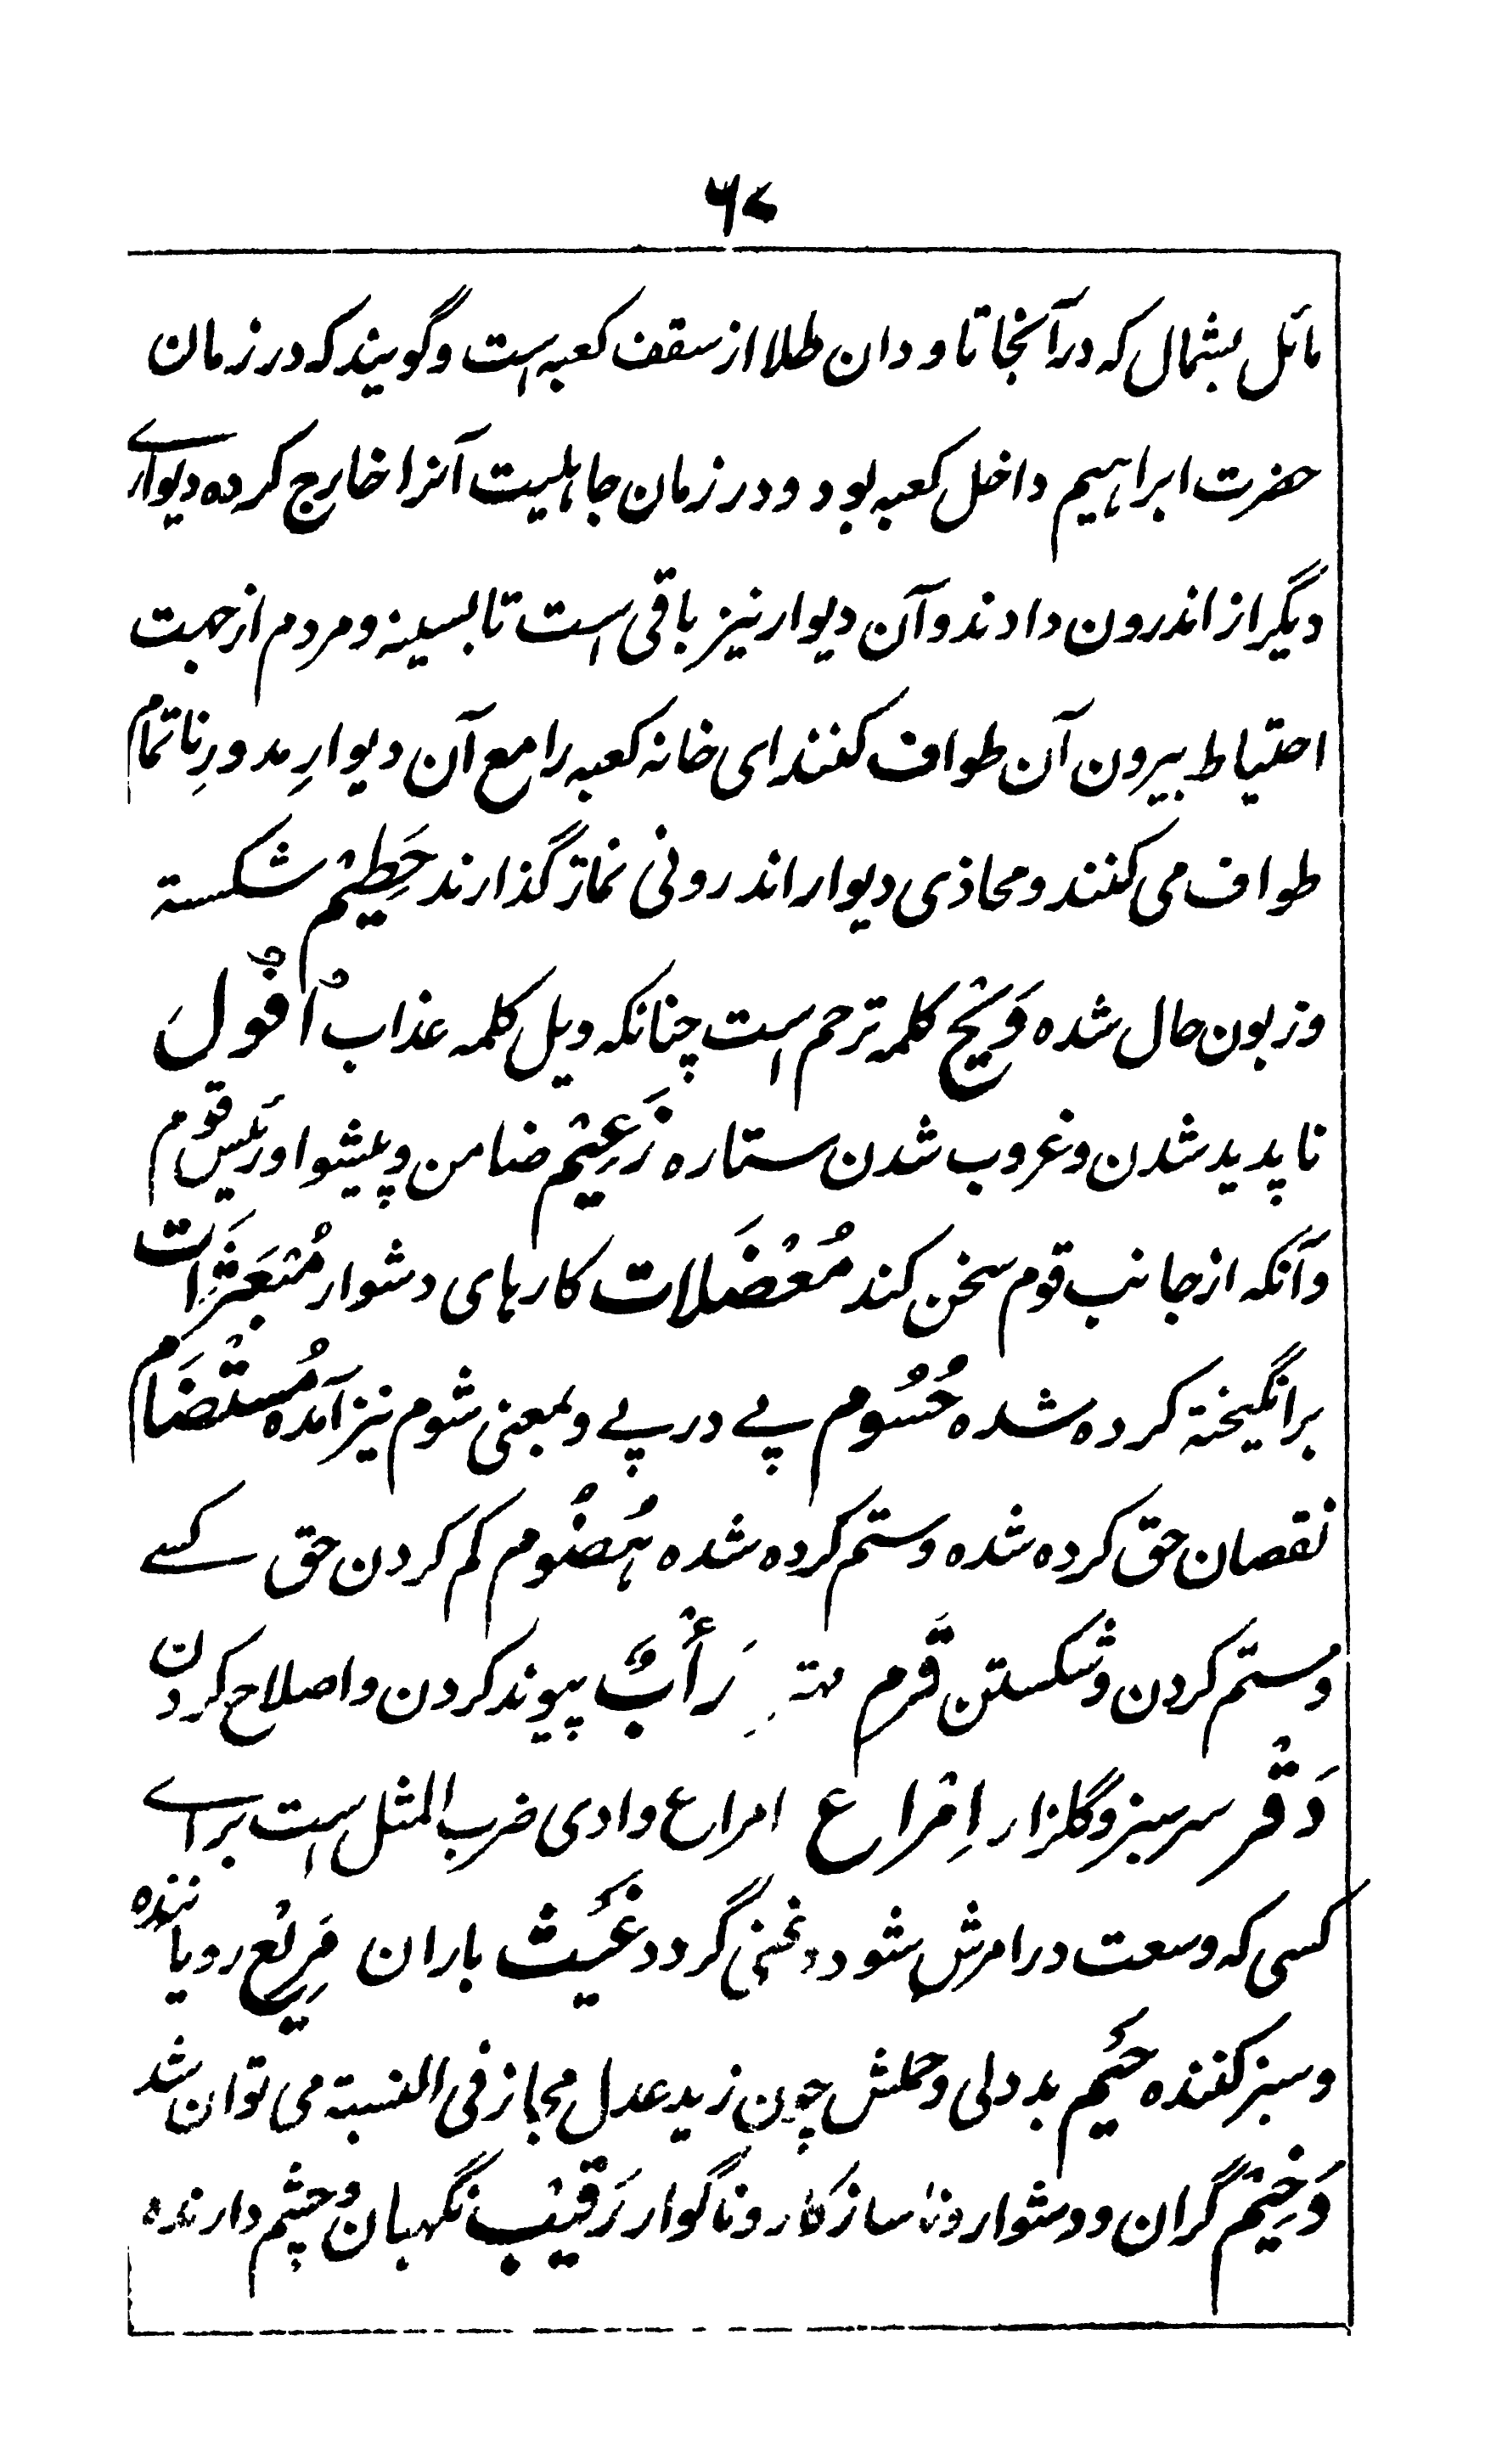 ۶۷
مائل بشمال که در آنجا تاودان طلا از سقف کعبه است و گویند که در زمان
حضرت ابراهیم داخل کعبه بود و در زمان جاہلیت آنرا خارج کرده دیوارے
دیگر از اندرون دادند و آن دیوار نیز باقی است تا بسینه و مردم از جهت
احتیاط بیرون آن طواف کنند ای خانه کعبه را مع آن دیوارِ مدورِ ناتمام
طواف می کنند و محاذی دیوار اندرونی نماز گذارند حَطِیْم شکسته
و زبون حال شده وَیْح کلمه ترحم است چنانکه ویل کلمه عذاب اُفُولَ
ناپدید شدن و غروب شدن ستاره زَعِیْم ضامن و پیشوا و رئیس قوم
و آنکه از جانب قوم سخن کند مُعْضَلات کارہای دشوار مُبْعَثِرَات
برانگیخته کرده شده حُسُوم پے در پے و بمعنی شوم نیز آمده مُسْتَضَام
نقصان حق کرده شده و ستم کرده شده ہُضُوم کم کردن حق کسے
و ستم کردن و شکستن قَرم رَأْبٌ پیوند کردن و اصلاح کردن
دَقْر سرسبز و گلزار اِمْرَاع امراع وادی ضرب المثل است براے
کسی که وسعت در امرش شود و غنی گردد غَیْث باران مَرِیْع رویاننده
و سبز کننده خَیْم بددلی و حملش چون زید عدل مجاز فی النسبة می توان شد
وَخِیْم گران و دشوار و ناسازکار و ناگوار رَقِیْب نگهبان و چشم دارنده